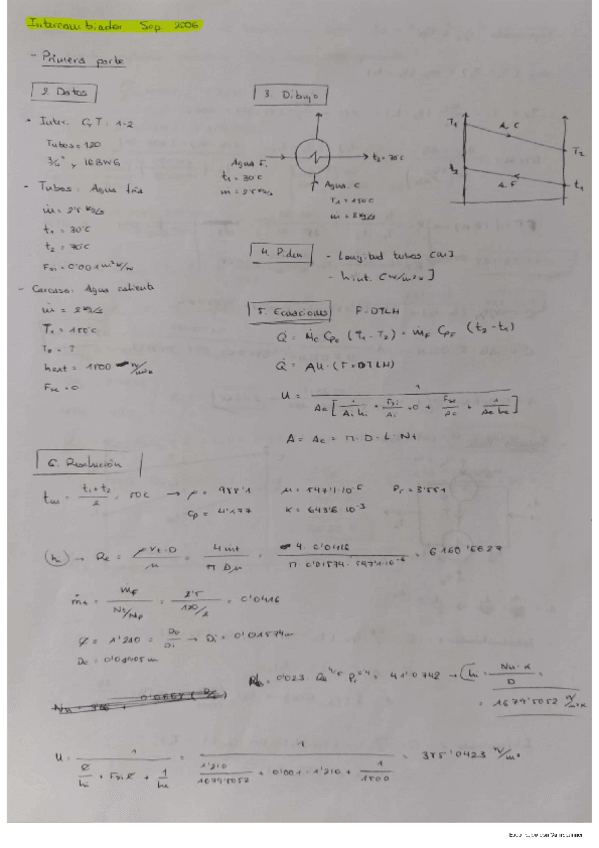 Intercambiador Sep 2006
- Primera parte
2. Datos
- Inter. C y T: 1-2
Tubos = 120
3/4" y 16BWG
- Tubos: Agua fría
ṁ = 2'5 kg/s
t₁ = 30°C
t₂ = 70°C
Fsi = 0'001 m²K/W
- Carcasa: Agua caliente
ṁ = 2 kg/s
T₁ = 150°C
T₂ = ?
hext = 1500 W/m²K
Fse = 0
3. Dibujo
Agua F.
t₁ = 30°C
ṁ = 2'5 kg/s
t₂ = 70°C
Agua C
T₁ = 150°C
ṁ = 2 kg/s
T₁
t₂
A. C
A. F
T₂
t₁
4. Piden
- Longitud tubos [m]
- hint. [W/m²K]
5. Ecuaciones
F·DTLM
Q̇ = ṁc Cpc (T₁-T₂) = ṁF CpF (t₂-t₁)
Q̇ = AU·(F·DTLM)
U = 1 / Ae[1/Ai hi + Fsi/Ai + 0 + Fse/Ae + 1/Ae he]
A = Ae = π·D·L·Nt
6. Resolución
tm = t₁+t₂/2 = 50°C → ρ = 988'1 μ = 547'1·10⁻⁶ Pr = 3'551
Cp = 4'177 K = 643'6·10⁻³
(h) → Re = ρVt·D/μ = 4ṁt/πDiμ = 4·0'0416/π·0'01574·547'1·10⁻⁶ = 6160'6627
ṁt = ṁF/Nt/Np = 2'5/120/2 = 0'0416
φ = 1'210 = De/Di → Di = 0'01574m
De = 0'01905m
= 0'023 Re^4/5 Pr^0'4 = 41'0742 → hi = Nu·K/D =
= 1679'5052 W/m²K
U = 1 / φ/hi + Fsi φ + 1/he = 1 / 1'210/1679'5052 + 0'001·1'210 + 1/1500 = 385'0423 W/m²